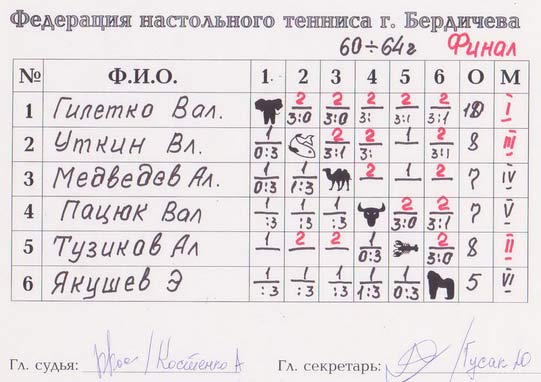 Федерация настольного тенниса г. Бердичева
60÷64г Финал
№ Ф.И.О. 1 2 3 4 5 6 О М
1 Гилетко Вал. 2 3:0 2 3:0 2 3: 2 3:1 2 3:1 10 I
2 Уткин Вл. 1 0:3 2 3:1 2 3: 1 2 3:1 8 III
3 Медведев Ал. 1 0:3 1 1:3 2 1 2 7 IV
4 Пацюк Вал 1 :3 1 :3 1 :3 2 3:0 2 3:1 7 V
5 Тузиков Ал 1 2 2 1 0:3 2 3:0 8 II
6 Якушев Э 1 :3 1 :3 1 :3 1 1:3 1 0:3 5 VI
Гл. судья: /Костенко А Гл. секретарь: /Гусак Ю